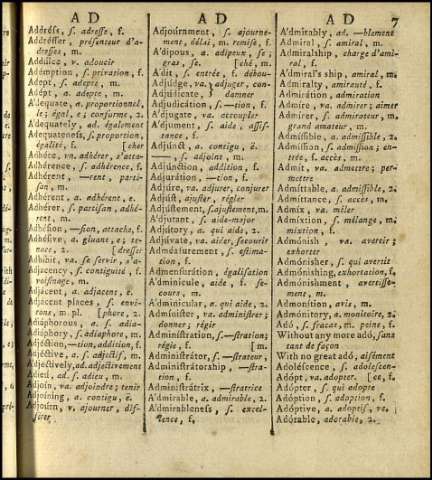 A D
Addréss, s. adresse, f.
Addrésser, présenteur d'a-
dresses, m.
Addúlce, v. adoucir
Adémption, s. privation, f.
Adépt, s. adepte, m.
Adépt, a. adepte, m.
Adequate, a. proportionnel,
le; égal, e; conforme, 2.
Adequately, ad. également
Adequateness, s. proportion,
égalité, f. [cher
Adhére, va. adhérer, s'atta-
Adhérence, s. adhésion, f.
Adhérent, —rent, parti-
san, m.
Adhérent, a. adhérent, e.
Adhérer, s. partisan, adhé-
rent, m.
Adhésion, —sion, attache, f.
Adhésive, a. gluant, e; te-
nace, 2. [dresser
Adhibit, va. se servir, s'a-
Adjacency, s. contiguité, f.
voisinage, m.
Adjacent, a. adjacent, e.
Adjacent places, s. envi-
rons, m. pl. [sphere, 2.
Adiaphorous, a. s. adia-
Adiaphory, s. adiaphore, m.
Adjéction, —tion, addition, f.
Adjective, s. adjectif, m.
Adjectively, ad. adjectivement
Adieú, ad. s. adieu, m.
Adjoin, va. adjoindre; tenir
Adjoining, a. contigu, ë.
Adjoúrn, v. ajourner, dif-
férer
A D
Adjoúrnment, s. ajourne-
ment, délai, m. remise, f.
A'dipous, a. adipeux, se;
gras, se. [ché, m.
A'dit, s. entrée, f. débou-
Adjúdge, va. adjuger, con-
Adjúdicate, damner
Adjudicátion, s. —tion, f.
A'djugate, va. accoupler
A'djument, s. aide, assis-
tance, f.
Adjúnct, a. contigu, ë.
——, s. adjoint, m.
Adjúnction, addition, f.
Adjurátion, —tion, f.
Adjúre, va. adjurer, conjurer
Adjúst, ajuster, régler
Adjústment, s. ajustement, m.
A'djutant, s. aide-major
Adjútory, a. qui aide, 2.
Adjúvate, va. aider, secourir
Admeásurement, s. estima-
tion, f.
Admensurátion, égalisation
A'dminicule, aide, f. se-
cours, m.
Adminícular, a. qui aide, 2.
Admínister, va. administrer;
donner; régir
Administrátion, s.—stration;
régie, f. [m.
Administrátor, s. —strateur,
Administrátorship, —stra-
tion, f.
Administrátrix, —stratrice
A'dmirable, a. admirable, 2.
A'dmirableness, s. excel-
lence, f.
A D 7
A'dmirably, ad. —blement
A'dmiral, s. amiral, m.
A'dmiralship, charge d'ami-
ral, f.
A'dmiral's ship, amiral, m.
A'dmiralty, amirauté, f.
Admirátion, admiration
Admíre, va. admirer; aimer
Admírer, s. admirateur, m.
grand amateur, m.
Admíssible, a. admissible, 2.
Admíssion, s. admission; en-
trée, f. accès, m.
Admít, va. admettre; per-
mettre
Admíttable, a. admissible, 2.
Admíttance, s. accès, m.
Admíx, va. mêler
Admíxtion, s. mélange, m.
mixtion, f.
Admónish, va. avertir;
exhorter
Admónisher, s. qui avertit
Admónishing, exhortation, f.
Admónishment, avertisse-
ment, m.
Admonítion, avis, m.
Admónitory, a. monitoire, 2.
Adó, s. fracas, m. peine, f.
Without any more adó, sans
tant de façon
With no great adó, aisément
Adoléscence, s. adolescen-
Adópt, va. adopter. [ce, f.
Adópter, s. qui adopte
Adóption, s. adoption, f.
Adóptive, a. adoptif, ve.
Adórable, adorable, 2.